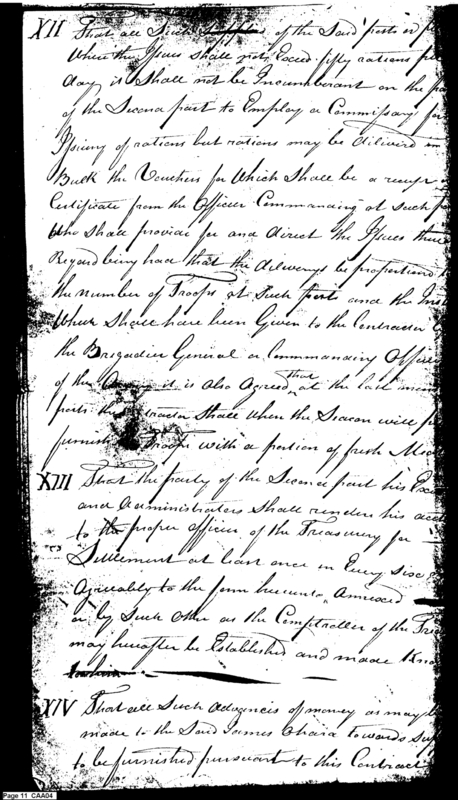 XII That all Such Supplies of the Said posts or p
Where the Issues Shall not Exceed fifty rations pr
day, it Shall not be Incumberant on the pa
of the Second part to Employ a Commissary for
Issuing of rations but rations may be diliverd in
Bulk the Vouchers for Which Shall be a receipt
Certificate from the Officer Commanding at Such p
Who Shall provide for and direct the Issues there
Regard being had that the diliverys be proportiond t
the number of Troops at Such posts and the Ins
Which Shall have been Given to the Contractor
the Brigadier General or Commanding Office
of the it is also Agreed that at the last men
posts the Contractor Shall When the Season will p
furnish the Troops with a portion of fresh Meat
XIII That the party of the Second part his Exe
and Administrators Shall render his acc
to the proper officer of the Treasury for
Settlement at least once in Every Six
Agreeably to the form hereunto Annexed
or by Such other as the Comptroller of the Trea
may hereafter be Established and made Kno
XIV That all Such Advances of money as may b
made to the Said James Ohara towards Sup
to be furnished pursuant to this Contract
Page 11 CAA04